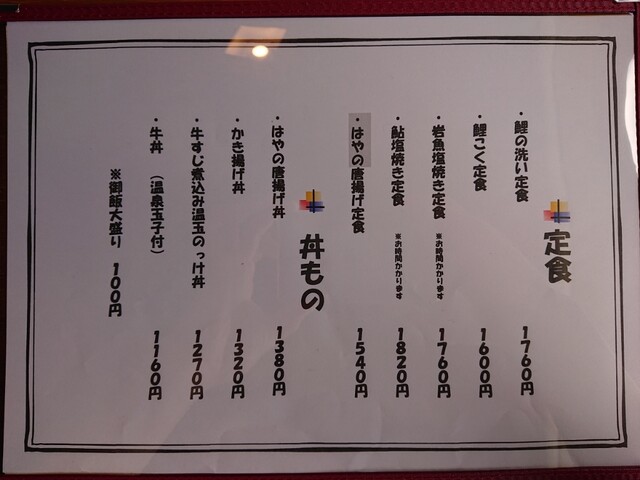 定食
・鯉の洗い定食 1760円
・鯉こく定食 1600円
・岩魚塩焼き定食 ※お時間かかります 1760円
・鮎塩焼き定食 ※お時間かかります 1820円
・はやの唐揚げ定食 1540円
丼もの
・はやの唐揚げ丼 1380円
・かき揚げ丼 1320円
・牛すじ煮込み温玉のっけ丼 1270円
・牛丼 (温泉玉子付) 1160円
※御飯大盛り 100円